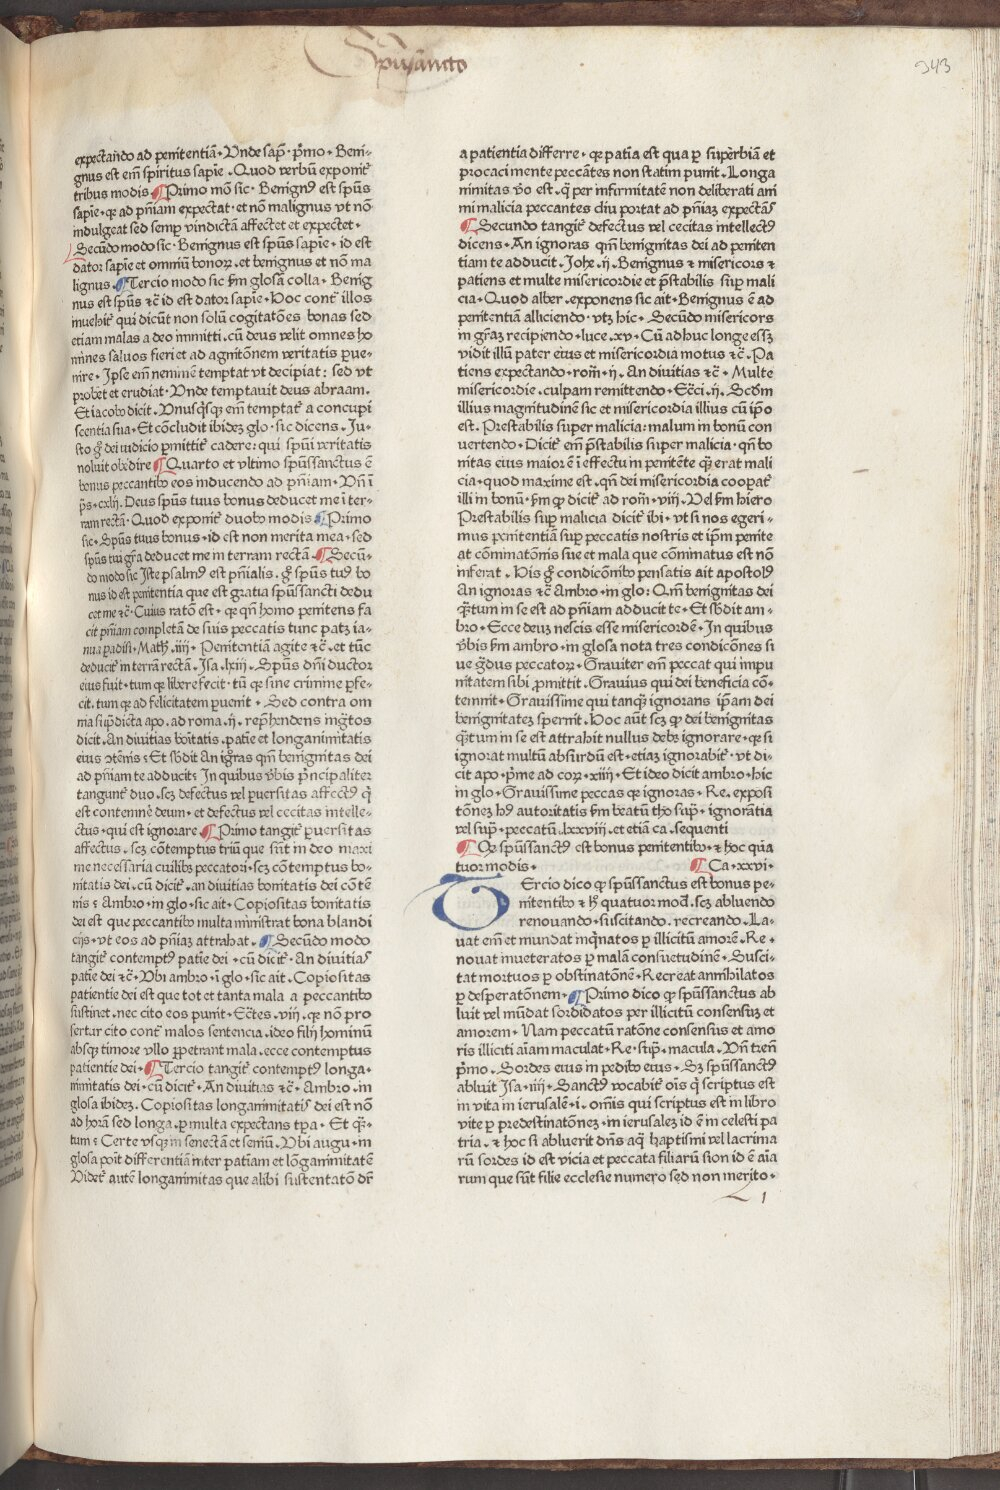 Spūsancto
343
expectando ad penitentiā. Vnde sap̄. p̄mo. Beni-
gnus est em̄ spiritus sapīe. Quod verbū exponit̄
tribus modis ¶Primo mō sic. Benignꝰ est spūs
sapīe. qꝫ ad pn̄iam expectat. et nō malignus vt nō
indulgeat sed semp̲ vindictā affectet et expectet.
Secūdo modo sic. Benignus est spūs sapīe. id est
dator sapīe et omniū bonoꝝ. et benignus et nō ma
lignus. ¶Tercio modo sic ẜm glosā colla. Benig
nus est spūs ⁊c̄ id est dator sapīe. Hoc cont̄ illos
inuehit̄ qui dicūt non solū cogitatōes bonas sed
etiam malas a deo immitti. cū deus velit omnes ho
mines saluos fieri et ad agnitōnem veritatis p̲ue-
nire. Ipse em̄ neminē temptat vt decipiat: sed vt
probet et erudiat. Vnde temptauit deus abraam.
Et iacob dicit. Vnusq̄sqꝫ em̄ temptat̄ a concupi
scentia sua. Et cōcludit ibideꝫ glo. sic dicens. Ju-
sto ḡ dei iudicio p̲mittit̄ cadere: qui spūi veritatis
noluit obedire ¶Quarto et vltimo spūssanctus ē
bonus peccantibꝰ eos inducendo ad pn̄iam. Vn̄ ī
p̄s. cxlij. Deus spūs tuus bonus deducet me ī ter-
ram rectā. Quod exponit̄ duobꝰ modis ¶Primo
sic. Spūs tuus bonus. id est non merita mea. sed
spūs tui gr̄a deducet me in terram rectā. ¶Secū-
do modo sic Iste psalmꝰ est pn̄ialis. ḡ spūs tuꝰ bo
nus id est penitentia que est gratia spūssancti dedu
cet me ⁊c̄. Cuius ratō est. qꝫ qn̄ homo penitens fa
cit pn̄iam completā de suis peccatis tunc patꝫ ia-
nua padisi. Math̄. iiij. Penitentiā agite ⁊c̄. et tūc
deducit̄ in terrā rectā. Isa. lxiij. Spūs dn̄i ductor
eius fuit. tum qꝫ libere fecit. tū qꝫ sine crimine p̲fe-
cit. tum qꝫ ad felicitatem p̲uenit. Sed contra om
nia sup̲dicta apo. ad roma. ij. rep̄hendens īgratos
dicit. An diuitias bōitatis. patīe et longanimitatis
eius ↄtēnis: Et s̄bdit An igras qm̄ benignitas dei
ad pn̄iam te adducit: In quibus v̄bis p̄ncipaliter
tangunt̄ duo. scꝫ defectus vel p̲uersitas affectꝰ q̄
est contemnē deum. et defectus vel cecitas intelle-
ctus. qui est ignorare ¶Primo tangit̄ p̲uersitas
affectus. scꝫ cōtemptus triū que sūt in deo maxi
me necessaria cuilibꝫ peccatori. scꝫ cōtemptus bo-
nitatis dei. cū dicit. an diuitias bonitatis dei cōtē
nis: Ambro. in glo. sic ait. Copiositas bonitatis
dei est que peccantibꝰ multa ministrat bona blandi
cijs. vt eos ad pn̄iaꝫ attrahat. ¶Secūdo modo
tangit̄ contemptꝰ patīe dei. cū dicit̄. An diuitias
patīe dei ⁊c̄. Vbi ambro. ī glo. sic ait. Copiositas
patientie dei est que tot et tanta mala a peccantibꝰ
sustinet. nec cito eos punit. Ecc̄tes. viij. qꝫ nō pro
fertur cito cont̄ malos sentencia. ideo filij hominū
absqꝫ timore vllo p̲petrant mala. ecce contemptus
patientie dei. ¶Tercio tangit̄ contemptꝰ longa-
nimitatis dei. cū dicit̄. An diuitias ⁊c̄. Ambro. in
glosa ibideꝫ. Copiositas longanimitatis dei est nō
ad horā sed longa. p̲ multa expectans tp̄a. Et qꝫ-
tum: Certe vsqꝫ in senectā et seniū. Vbi augu. in
glosa poīt differentiā inter patiam et lōganimitatē
Videt̄ autē longanimitas que alibi sustentatō dr̄
a patientia differre. qꝫ patīa est qua p̲ sup̲biā et
procaci mente peccātes non statim punit. Longa
nimitas v̄o est. q̄ per infirmitatē non deliberati ani
mi malicia peccantes diu portat ad pn̄iaꝫ expectās
¶Secundo tangit̄ defectus vel cecitas intellectꝰ
dicens. An ignoras qm̄ benignitas dei ad peniten
tiam te adducit. Johe. ij. Benignus ⁊ misericors ⁊
patiens et multe misericordie et p̄stabilis sup̲ mali
cia. Quod alber. exponens sic ait. Benignus ē ad
penitentiā alliciendo. vtꝫ hic. Secūdo misericors
in gr̄aꝫ recipiendo. luce. xv. Cū adhuc longe essꝫ
vidit illū pater eius et misericordia motus ⁊c̄. Pa
tiens expectando. rom̄. ij. An diuitias ⁊c̄. Multe
misericordie. culpam remittendo. Ecc̄i. ij. Scd̄m
illius magnitudinē sic et misericordia illius cū ip̄o
est. Prestabilis super malicia: malum in bonū con
uertendo. Dicit̄ em̄ p̄stabilis super malicia. qn̄ bo
nitas eius maior ē ī effectu in penitēte q̄ꝫ erat mali
cia. quod maxime est. qn̄ dei misericordia coopat̄
illi in bonū. ẜm qꝫ dicit̄ ad rom̄. viij. Vel ẜm hiero
Prestabilis sup̲ malicia dicit̄ ibi. vt si nos egeri-
mus penitentiā sup̲ peccatis nostris et ip̄m penite
at cōminatōnis sue et mala que cōminatus est nō
inferat. His ḡ condicōnibꝰ pensatis ait apostolꝰ
An ignoras ⁊c̄ Ambro. in glo: Qm̄ benignitas dei
qꝫtum in se est ad pn̄iam adducit te. Et s̄bdit am-
bro. Ecce deuꝫ nescis esse misericordē. In quibus
v̄bis ẜm ambro. in glosa nota tres condicōnes si
ue g̊dus peccatoꝝ. Grauiter em̄ peccat qui impu
nitatem sibi ꝓmittit. Grauius qui dei beneficia cō-
temnit. Grauissime qui tanqꝫ ignorans ip̄am dei
benignitateꝫ spernit. Hoc aūt scꝫ qꝫ dei benignitas
qꝫtum in se est attrahit nullus debꝫ ignorare. qꝫ si
ignorat multū absurdū est. etiaꝫ ignorabit̄. vt di-
cit apo. p̄me ad coꝝ. xiiij. Et ideo dicit ambro. hic
in glo. Grauissime peccas qꝫ ignoras. Re. exposi
tōneꝫ hꝰ autoritatis ẜm beatū tho sup̄. ignorātia
vel sup̄. peccatū. lxxviij. et etiā ca. sequenti
¶Qꝫ spūssanctꝰ est bonus penitentibꝰ. ⁊ hoc qua
tuor modis. ¶Ca. xxvi.
Tercio dico qꝫ spūssanctus est bonus pe-
nitentibꝰ ⁊ h̄ quatuor mod̄. scꝫ abluendo
renouando. suscitando. recreando. La-
uat em̄ et mundat inq̄natos p̲ illicitū amorē. Re-
nouat inueteratos p̲ malā consuetudinē. Susci-
tat mortuos p̲ obstinatōnē. Recreat annihilatos
p̲ desperatōnem. ¶Primo dico qꝫ spūssanctus ab
luit vel mūdat sordidatos per illicitū consensuꝫ et
amorem. Nam peccatū ratōne consensus et amo
ris illiciti aīam maculat. Re. sup̲. macula. Vn̄ tren̄
p̄mo. Sordes eius in pedibꝰ eius. Sꝫ spūssanctꝰ
abluit Isa. iiij. Sanctꝰ vocabit̄ oīs q̄ scriptus est
in vita in ierusalē. i. omīs qui scriptus est in libro
vite p̲ predestinatōneꝫ. in ierusaleꝫ id ē in celesti pa
tria. ⁊ hoc si abluerit dn̄s aq̄ baptismi vel lacrima
rū sordes id est vicia et peccata filiarū sion id ē aīa
rum que sūt filie ecclesie numero sed non merito.
1